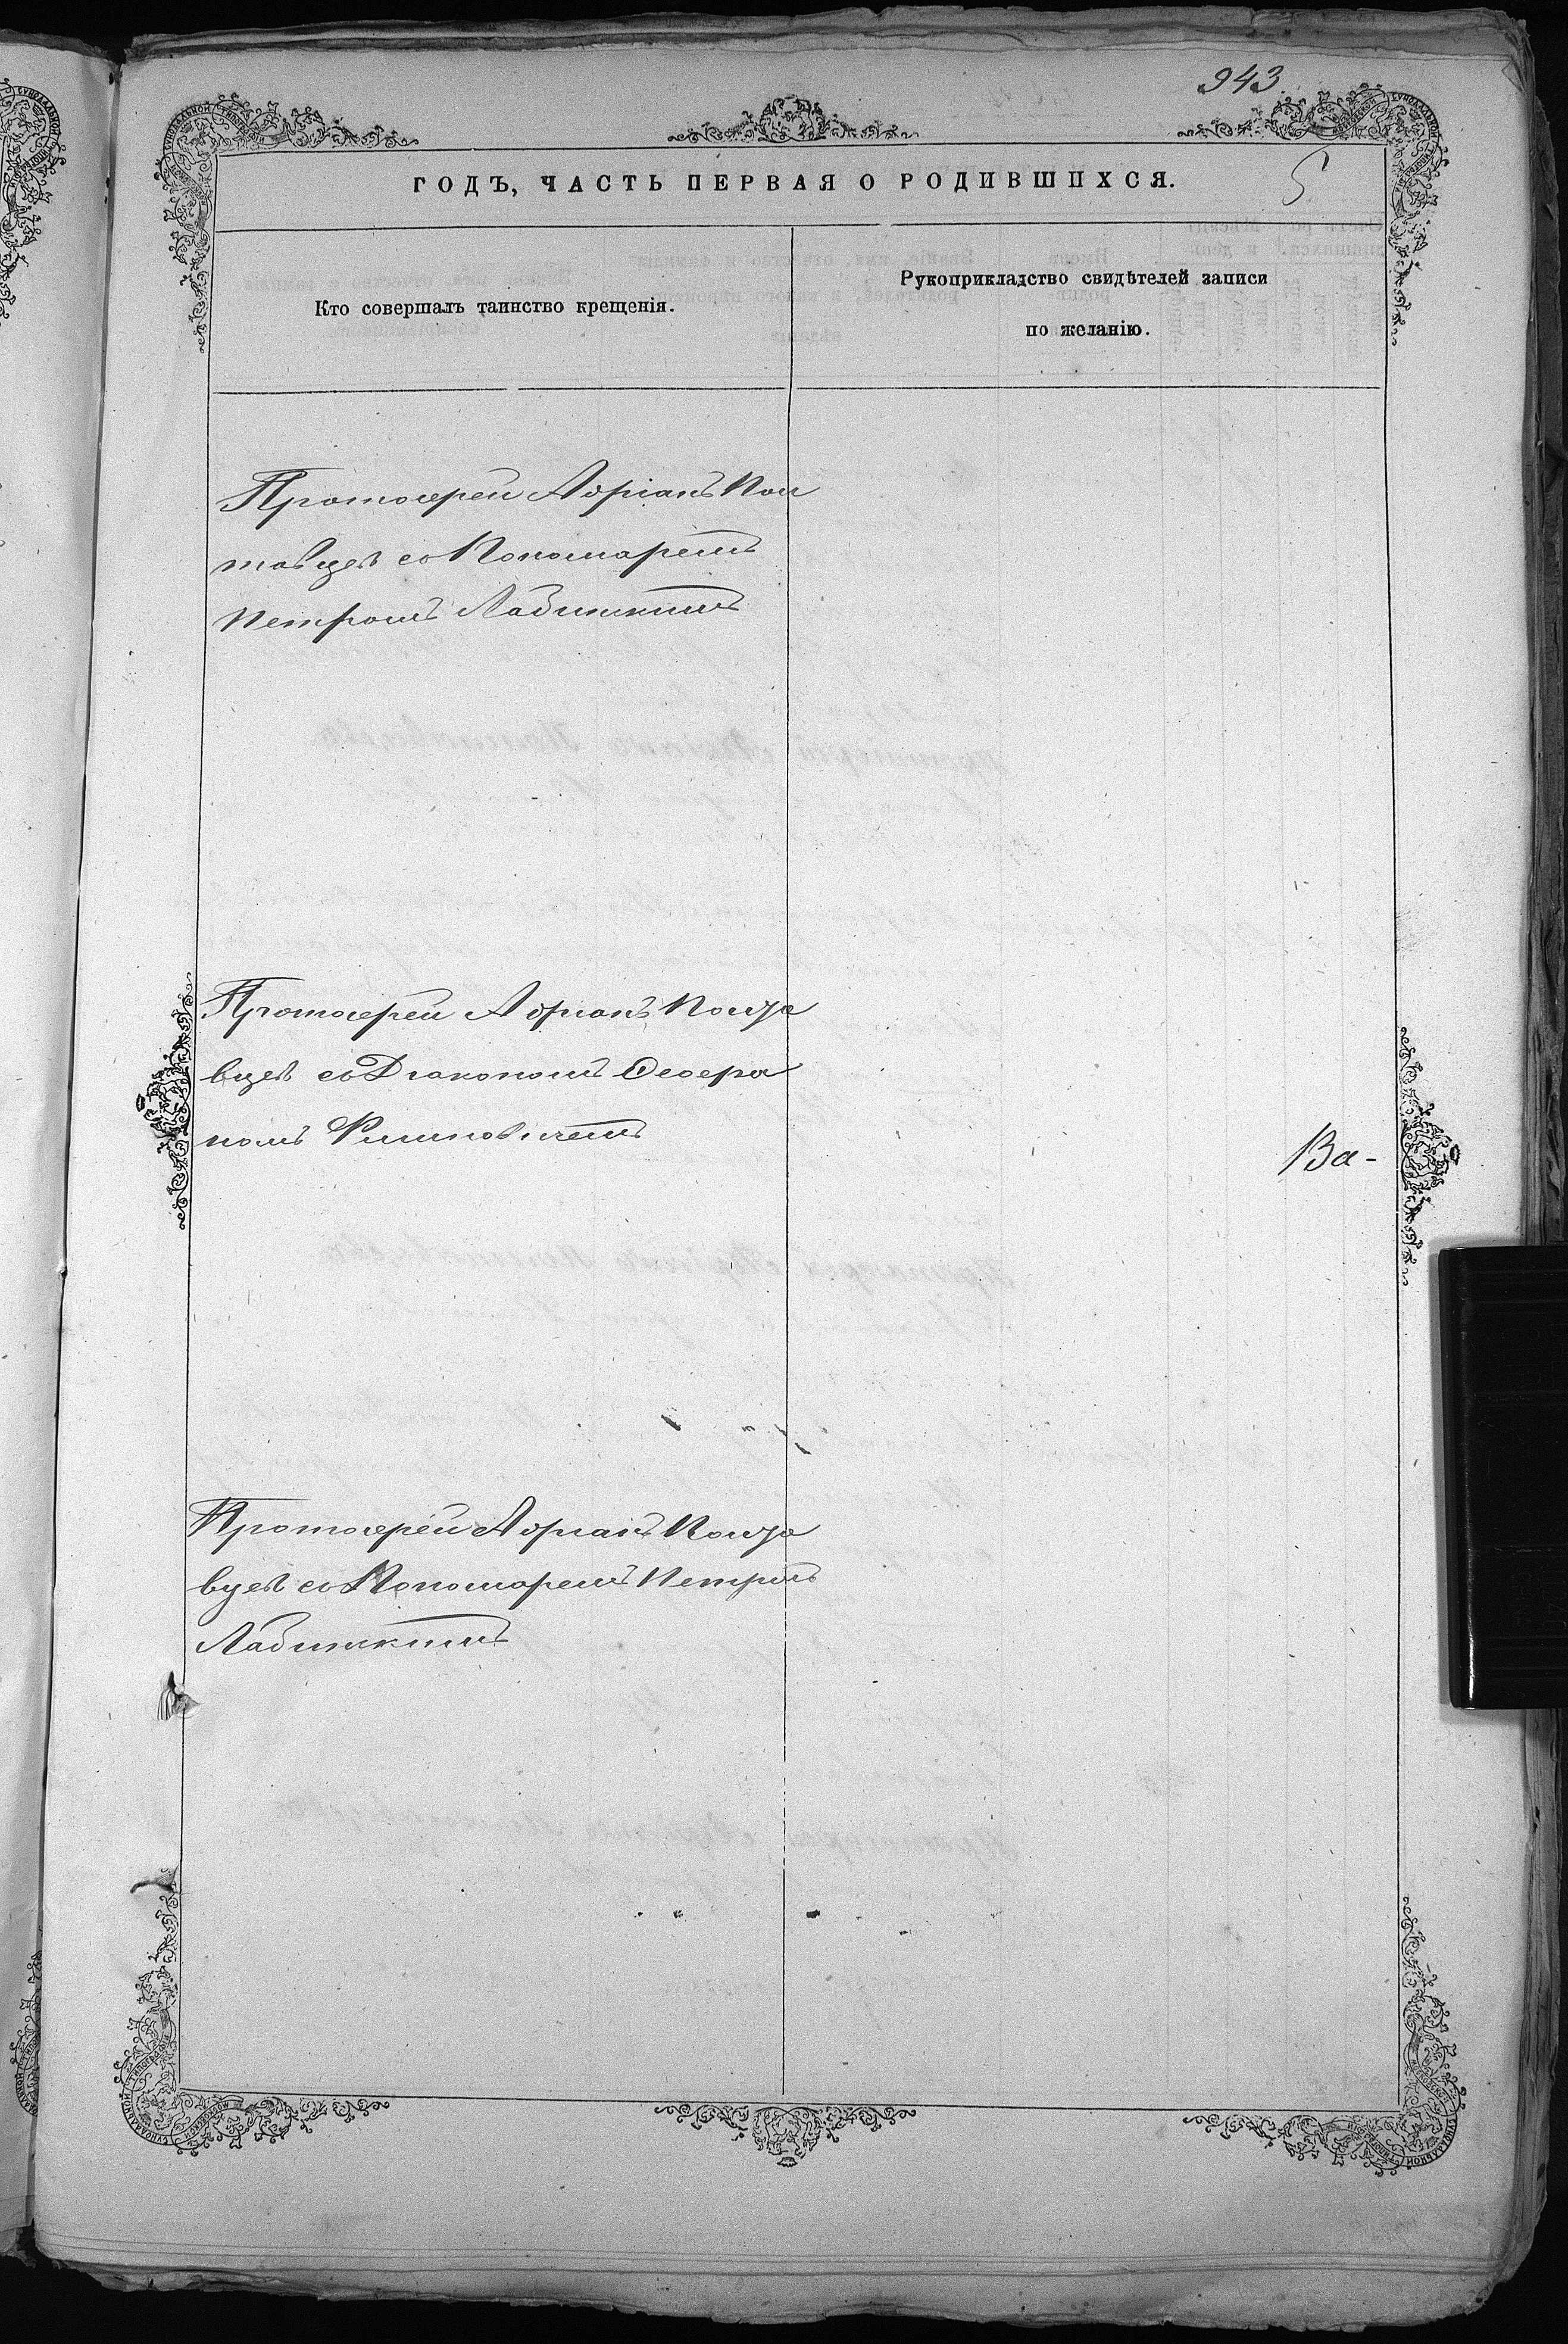 943.
5
ГОДЪ, ЧАСТЬ ПЕРВАЯ О РОДИВШИХСЯ.
Кто совершалъ таинство крещенія.
Рукоприкладство свидѣтелей записи
по желанію.
Протоіерей Адріанъ Пол
тавцевъ со Пономаремъ
Петромъ
Протоіерей Адріанъ Полта
вцев со Діакономъ
Ва-
Протоіерей Адріанъ Полта
вцев со Пономаремъ Петромъ